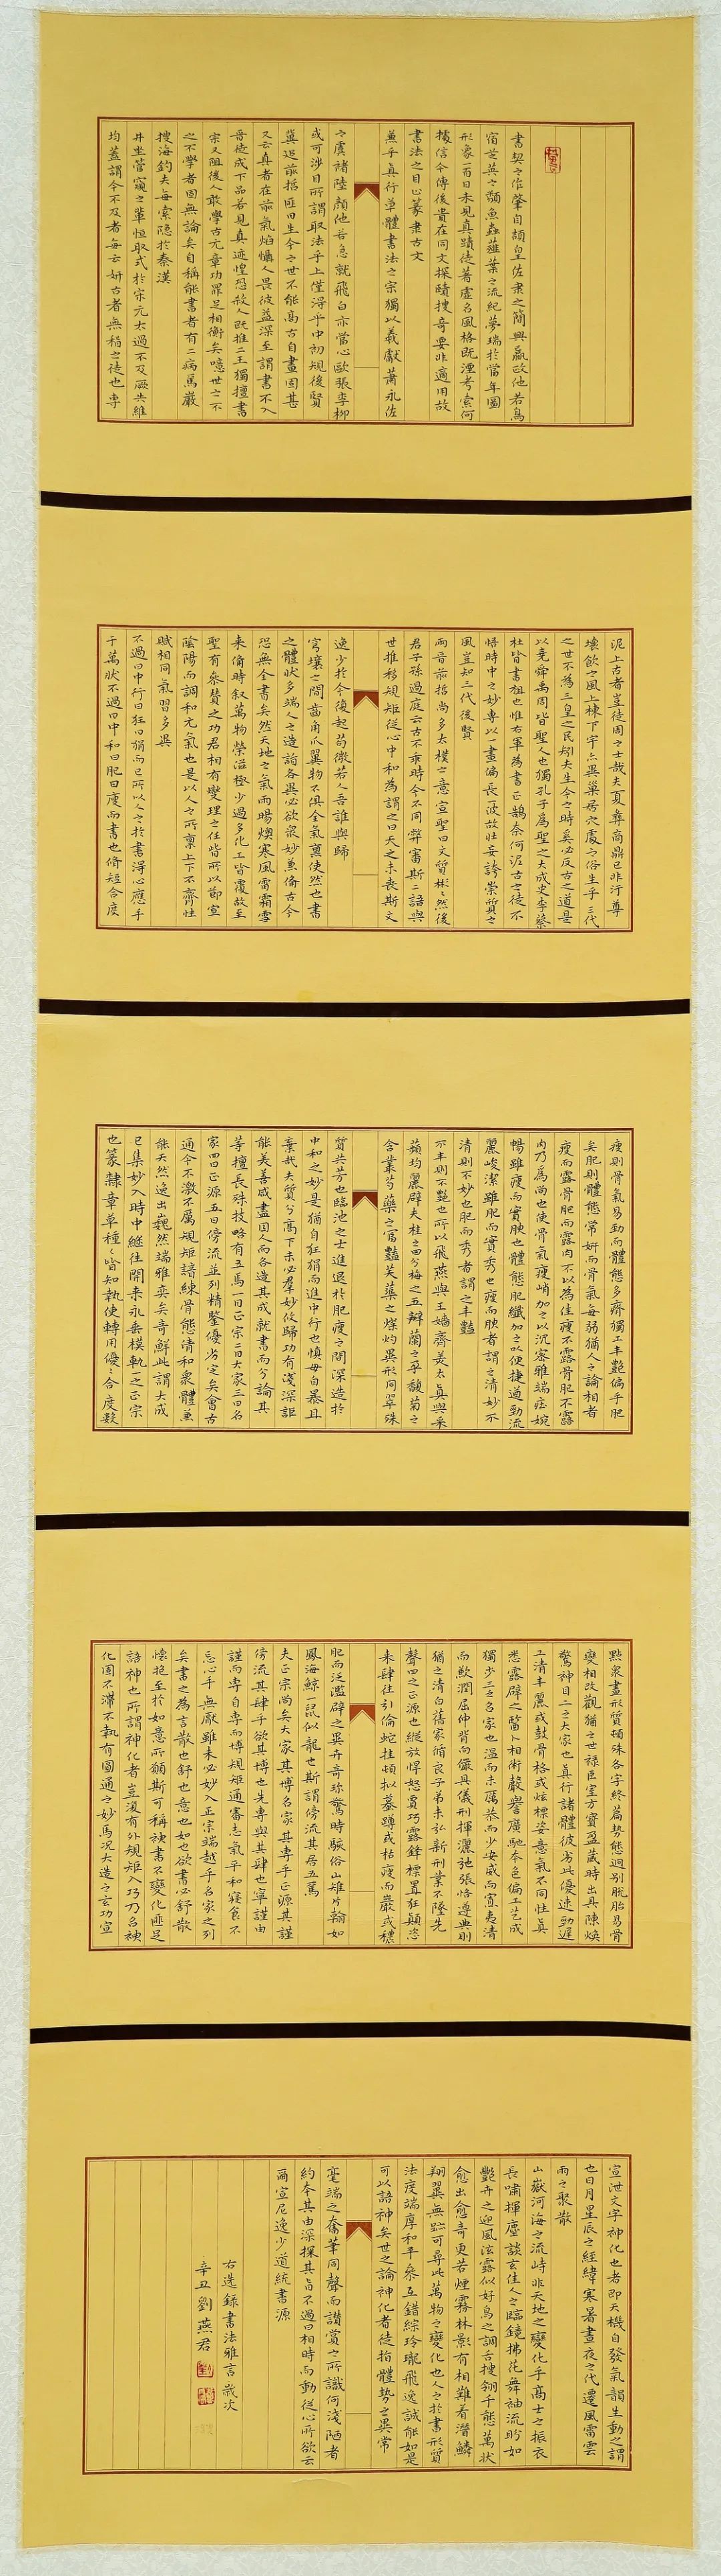 書契之作肇自頡皇佐隶之簡興嬴政他若鳥
宿芝英之類魚蟲薤葉之流紀夢瑞於當年圖
形象一百日未見真蹟徒著虛名風格既湮考索何
據信今傳後貴在同文探賾搜奇要非適用故
書法之目止篆隶古文
兼乎真行草體書法之宗獨以羲獻蕭永佐
之虞諸陸顔他若急就飛白亦當心歐張李柳
或可涉目所謂取法乎上僅得乎中初規後賢
冀追前括匪曰生今之世不能高古自畫固甚
又云真者在前氣焰懾人畏彼益深至謂書不入
晉徒成下品若見真迹惶恐殺人既推二王獨擅書
宗又阻後人敢學古尤章功罪足相衡矣噫世之不
之不學者固無論矣自稱能書者有二病焉巖
搜海釣夫每索隱於秦漢
井坐管窺之輩恒取式於宋元太過不及厥失維
均蓋謂今不及者每云妍古者無稽之徒也專
泥上古者豈徒周之士哉夫夏彝商鼎已非汙尊
壞飲之風上棟下宇亦異巢居穴處之俗生乎三代
之世不為三皇之民矧夫生今之時奚必反古之道是
以堯舜禹周皆聖人也獨孔子為聖之大成史李蔡
杜皆書祖也惟右軍為書正鵠奈何泥古之徒不
悟時中之妙專以一畫偏長一波故壯妄誇崇質之
風豈知三代後賢
兩晉前括尚多太樸之意宣聖曰文質彬々然後
君子孫過庭云古不乖時今不同弊審斯二語與
世推移規矩從心中和為謂之曰天之未喪斯文
逸少於今復起苟微若人吾誰與歸
穹壤之間齒角爪翼物不俱全氣稟使然也書
之體狀多端人之造詣各異必欲衆妙兼備古今
恐無全書矣然天地之氣雨暘燠寒風雷霜雪
来備時叙萬物榮滋極少過多化工皆覆故至
聖有參贊之功君相有燮理之任皆所以節宣
陰陽而調和元氣也是以人之所稟上下不齊性
賦相同氣習多異
不過曰中行曰狂曰狷而已所以人之於書得心應手
千萬狀不過曰中和曰肥曰瘦而書也脩短合度
瘦則骨氣易勁而體態多瘠獨工丰艷偏乎肥
矣肥則體態常妍而骨氣每弱猶人之論相者
瘦而露骨肥而露肉不以為佳瘦不露骨肥不露
肉乃為尚也使骨氣瘦峭加之以沉密雅端莊婉
暢雖瘦而實腴也體態肥纖加之以便捷遒勁流
麗峻潔雖肥而實秀也瘦而腴者謂之清妙不
清則不妙也肥而秀者謂之丰豔
不丰則不艷也所以飛燕與王嬙齊美太真與采
蘋均麗辟夫桂之四分梅之五瓣蘭之孕馥菊之
含叢芍藥之富豔芙蕖之燦灼異形同翠殊
質共芳也臨池之士進退於肥瘦之間深造於
中和之妙是猶自狂狷而進中行也慎毋自暴且
棄哉夫質分高下未必羣妙攸歸功有淺深詎
能美善咸盡因人而各造其成就書而分論其
等擅長殊技略有五焉一曰正宗二曰大家三曰名
家四曰正源五曰傍流並列精鑒優劣定矣會古
通今不激不厲規矩諳練骨態清和衆體兼
能天然逸出巍然端雅奕矣奇鮮此謂大成
已集妙入時中繼往開来永垂模軌一之正宗
也篆隸章草種々皆知執使轉用優々合度數
點衆畫形質頓殊各字終篇勢態迥别脱胎易骨
變相改觀猶之世禄巨室方寶盈藏時出具陳煥
驚神目二之大家也真行諸體彼劣此優速勁遲
工清丰麗或鼓骨格或炫標姿意氣不同性真
悉露辟之醫卜相術嚴譽廣馳本色偏工藝成
獨步三之名家也温而未厲恭而少安威而寡夷清
而歉潤屈伸背向儼具儀刑揮灑弛張恪遵典則
猶之清白舊家循良子弟未弘新刑業不隆先
聲四之正源也縱放悍怒賈巧露鋒標置狂顛恣
来肆往引倫蛇挂頓拟蟇蹲或枯瘦而巖或穠
肥而泛濫辟之異卉奇珍驚時駭俗山雉片翰如
鳳海鯨一鬣似龍也斯謂傍流其居五焉
夫正宗尚矣大家其博名家其專乎正源其謹
傍流其肆乎欲其博也先專與其肆也寧謹由
謹而專自專而博規矩通審志氣平和寢食不
忘心手無厭雖未必妙入正宗端越乎名家之列
矣書之為言散也舒也意也如也欲書必舒散
懷抱至於如意所願斯可稱神書不變化匪足
語神也所謂神化者豈復有外規矩入巧乃名神
化固不滯不執有圓通之妙焉况大造之玄功宣
宣泄文字神化也者即天機自發氣韻生動之謂
也日月星辰之經緯寒暑晝夜之代遷風雷雲
雨之聚散
山嶽河海之流峙非天地之變化乎高士之振衣
長嘯揮麈談玄佳人之臨鏡拂花舞袖流盼如
艷卉之迎風泫露似好鳥之調舌搜翎千態萬狀
愈出愈奇更若煙霧林影有相難着潛鱗
翔翼無跡可尋此萬物之變化也人之於書形質
法度端厚和平參互錯綜玲瓏飛逸誠能如是
可以語神矣世之論神化者徒指體勢之異常
毫端之奮筆同聲而讃賞之所識何淺陋者
約本其由深探其旨不過曰相時而動從心所欲云
爾宣尼逸少道統書源
右选錄書法雅言歲次
辛丑劉燕君